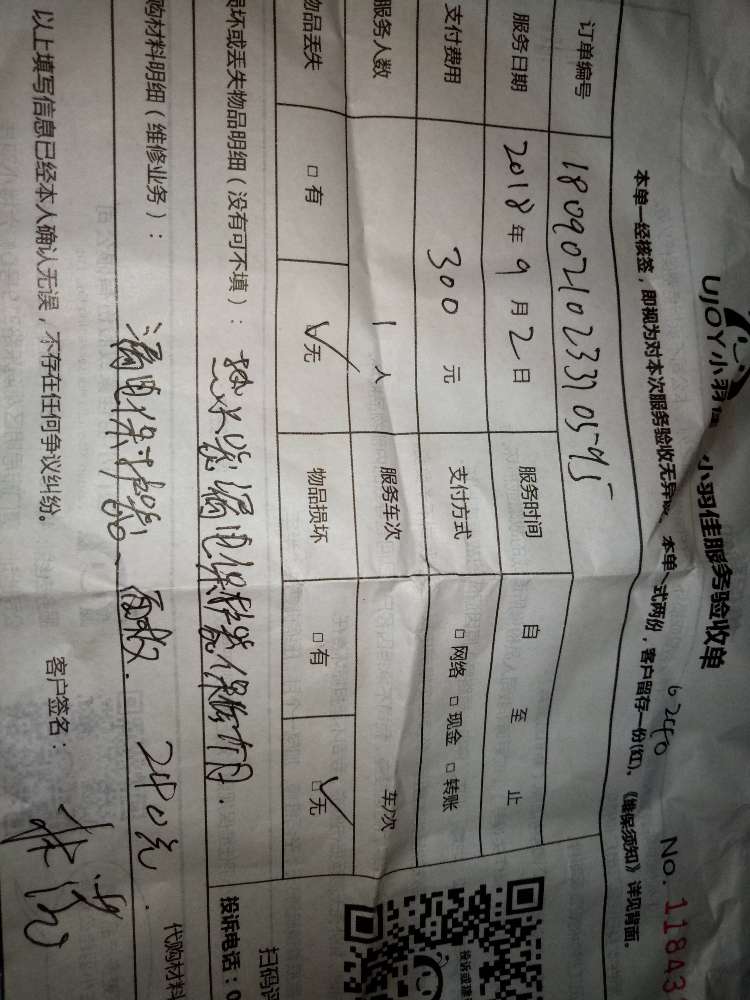 UJOY小羽佳 小羽佳服务验收单
6240 No. 11843
本单一经核签，即视为对本次服务验收无异议。本单一式两份，客户留存一份(红)。《维保须知》详见背面。
订单编号
服务日期 2018年9月2日 服务时间 自 至 止
支付费用 300 元 支付方式 □网络 □现金 □转账
服务人数 1 人 服务车次 车/次
物品丢失 □有 □无 物品损坏 □有 □无
损坏或丢失物品明细（没有可不填）： 热水器漏电保护器
扫码评
投诉电话：0
购材料明细（维修业务）： 漏电保护器 240元.
代购材料
以上填写信息已经本人确认无误，不存在任何争议纠纷。 客户签名：